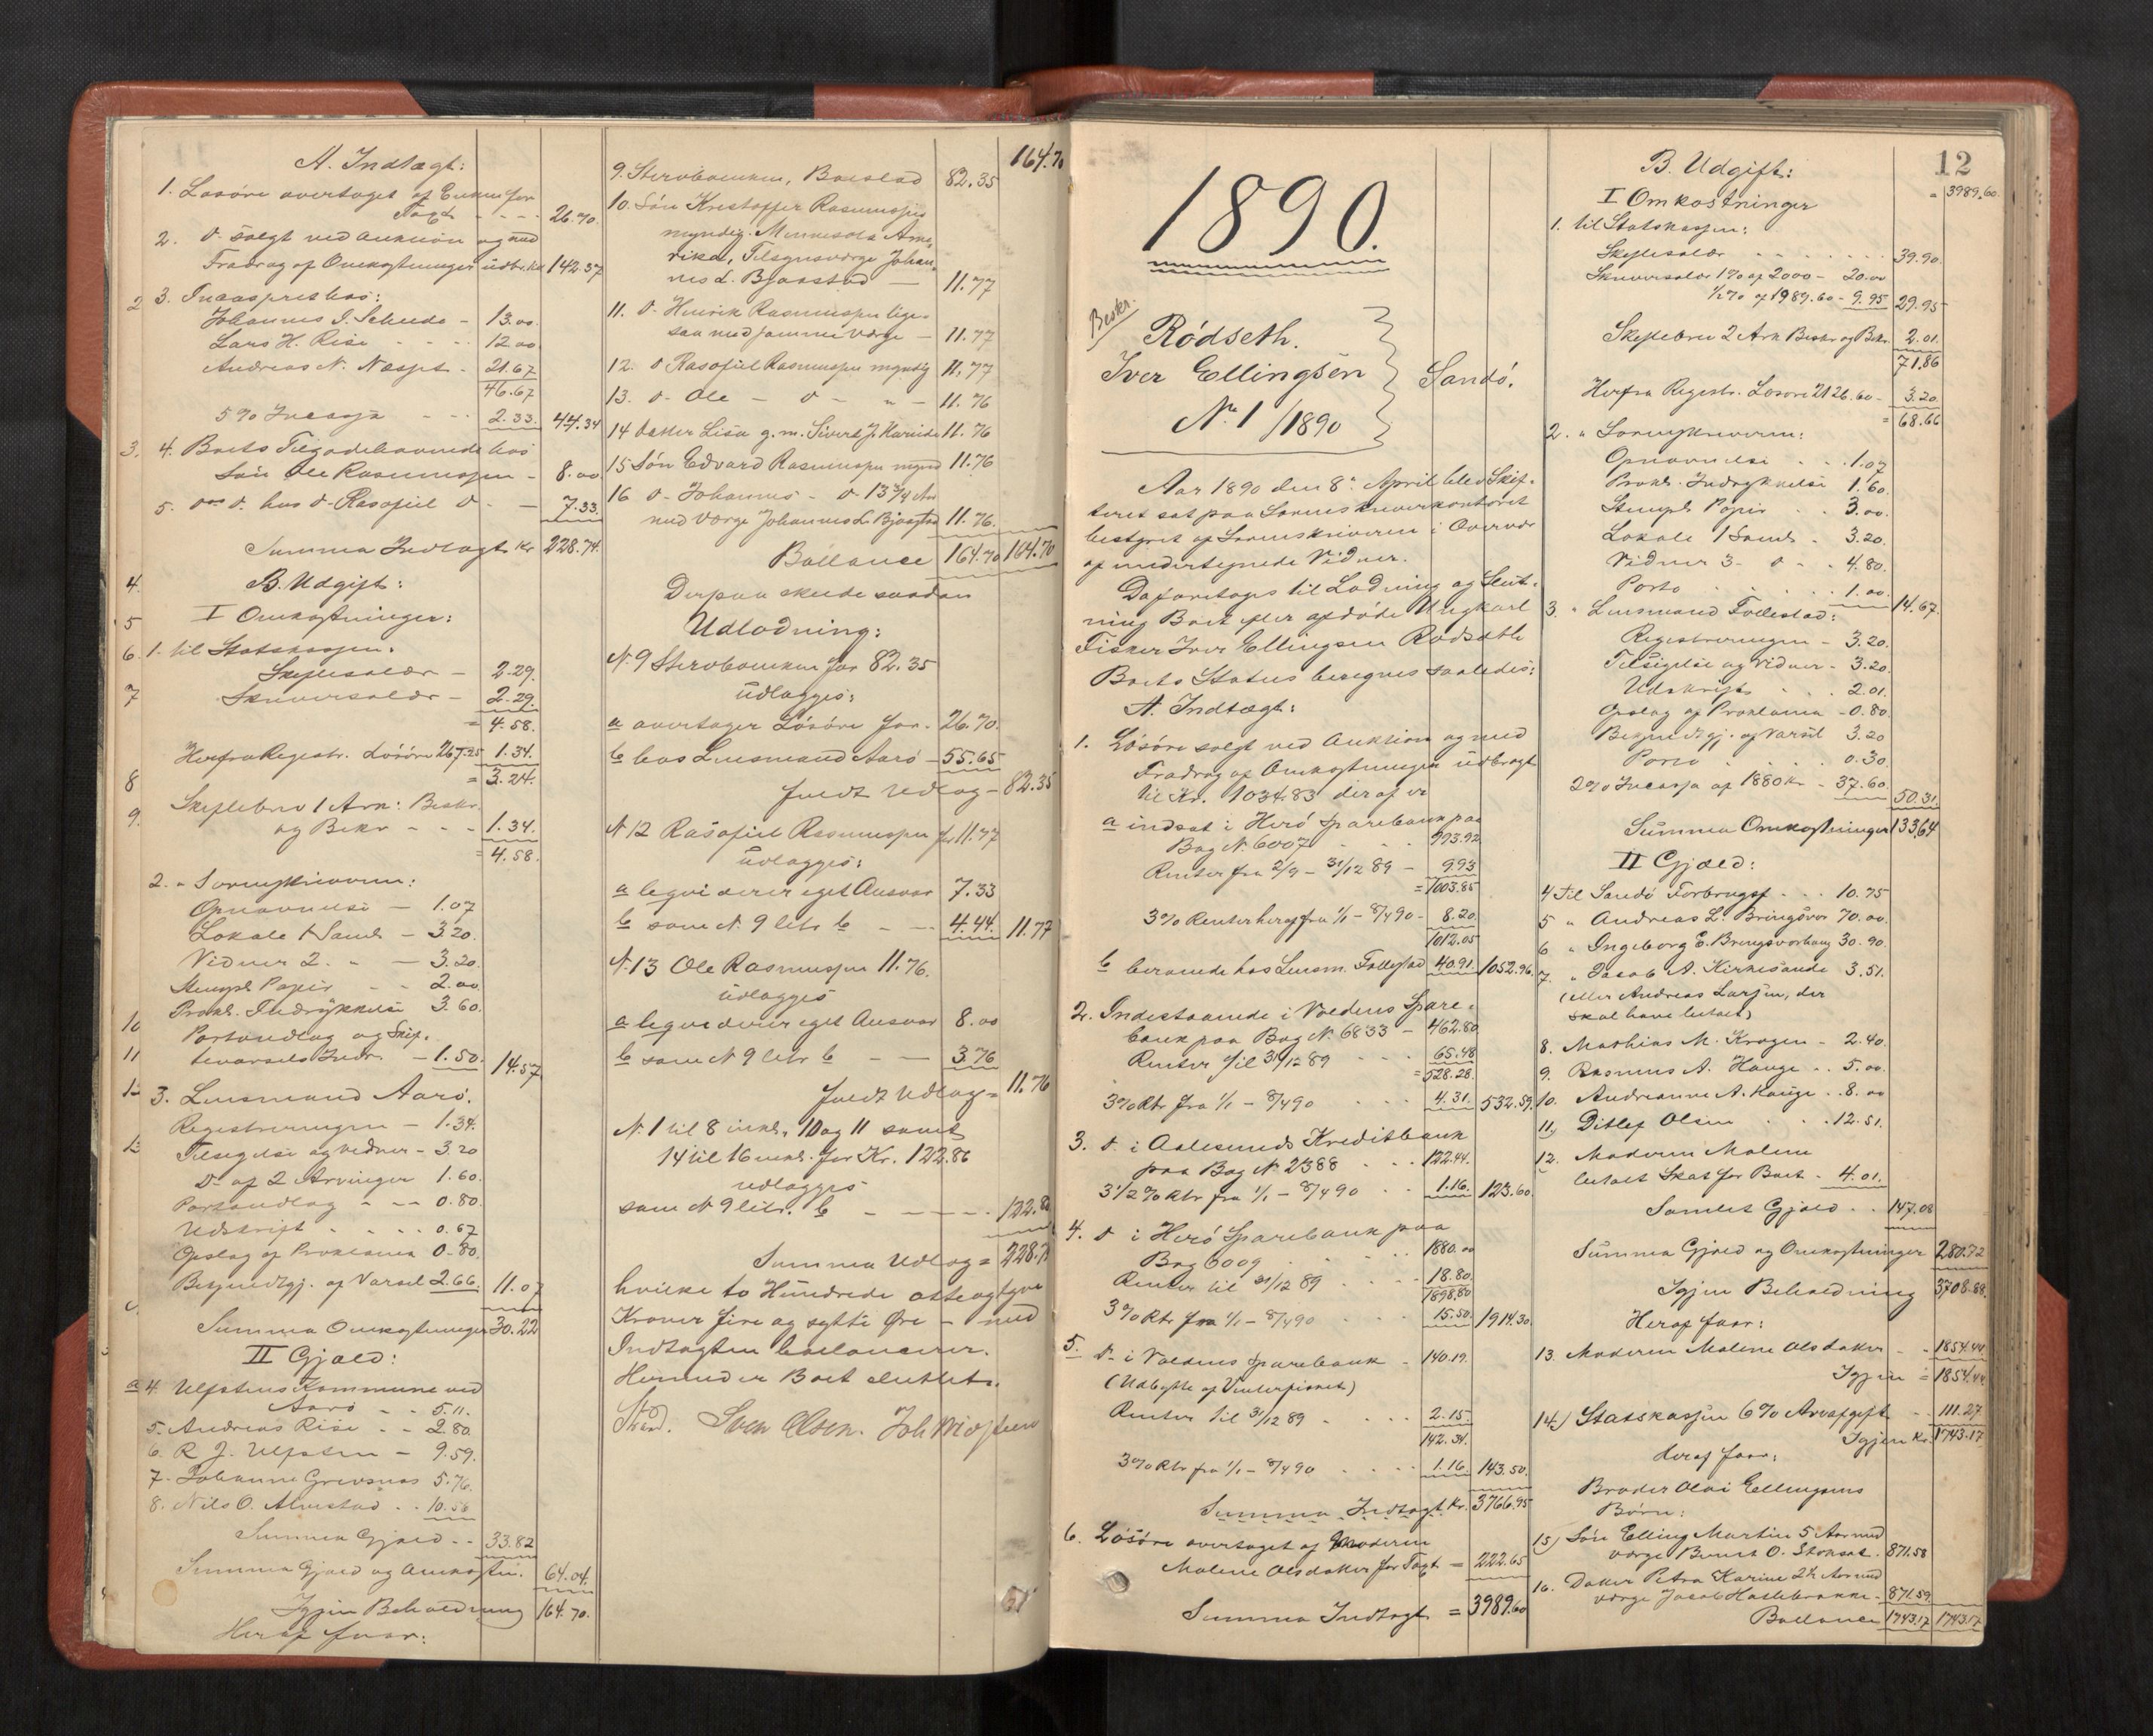 A. Indtægt:
1. Løsøre overtaget af Enken for
Taxt - - - - 26.70.
2. do solgt ved Auktion og med
Fradrag af Omkostninger udbr. Kr 142.37
3. Incasseret hos:
Johannes I. - 13.00.
Lars H. Rise - - - 12.00
Andreas N. - 21.67
46.67
5% Incasso - - - 2.33. 44.34
4. Boets Tilgodehavende hos
Søn Ole Rasmussen - 8.00
5. do hos do Rasofiel do - — 7.33.
Summa Indtægt Kr 228.74.
B. Udgift:
I Omkostninger:
1. til Statskassen:
Skiftesalær — 2.29.
Skriversalær — 2.29.
= 4.58.
Herfra Registr. Løsøre 267.25 1.34.
= 3.24.
Skiftebrev 1 Ark: Beskr.
og Bekr - - - 1.34.
= 4.58.
2. " Sorenskriveren:
Opnævnelse — 1.07
Lokale 1 Saml. — 3.20.
Vidner 2. " — 3.20.
Stempl. Papir - - 2.00
Prokl. Indrykkelse 3.60.
Portoudlæg og Skif-
tevarsels Indr. — 1.50. 14.57
3. Lensmand Aarø.
Registreringen — 1.34.
Tilsigelse og Vidner - 3.20
do af 2 Arvinger 1.60.
Portoudlæg - — 0.80.
Udskrift - - - - 0.67
Opslag af Proklama 0.80.
Bekjendtgj. af Varsel 2.66. 11.07
Summa Omkostninger 30.22
II Gjæld:
4. Ulfstens Kommune ved
Aarø - - 5.11.
5. Andreas Rise - - 2.80.
6. R. J. Ulfsten — 9.59.
7. Johanne Grevsnæs 5.76.
8. Nils O. Alvestad - - 10.56
Summa Gjæld - - 33.82
Summa Gjæld og Omkostn. 64.04.
Igjen Beholdning 164.70.
Heraf faar:
164.70
9. Stervboenken, 82.35
10. Søn Kristoffer Rasmussen
myndig. Minnesota Ame-
rika, Tilsynsværge Johan-
nes L. Bjaastad — 11.77
11. do Henrik Rasmussen lige-
saa med samme Værge — 11.77
12. do Rasofiel Rasmussen myndig 11.77
13. do Ole — do — " — 11.76
14 Datter Lisa g. m. Sivert J. 11.76
15 Søn Edvard Rasmussen mynd 11.76
16 do Johannes - do 13 3/4 Aar
med Værge Johannes L. Bjaastad 11.76.
Ballance 164.70 164.70
Derpaa skede saadan
Udlodning:
No 9 Stervboenken for 82.35
udlægges:
a overtager Løsøre for - 26.70.
b hos Lensmand Aarø - 55.65
fuldt Udlæg — 82.35
No 12 Rasofiel Rasmussen for 11.77
udlægges:
a begivi derer eget Ansvar 7.33
b som No 9 litr. b - — 4.44. 11.77
No 13 Ole Rasmussen 11.76.
udlægges
a begivi derer eget Ansvar 8.00
b som No 9 litr b - — 3.76
fuldt Udlæg = 11.76
No 1 til 8 inkl., 10 og 11 samt
14 til 16 inkl. for Kr. 122.86
udlægges
som No 9 litr. b - — — — 122.8
Summa Udlæg = 228.7
hvilke to Hundrede otteogtyve
Kroner fire og sytti Øre — med
Indtægten balancerer.
Hermed er Boet sluttet.
Sven Olsen.
1890.
Beskr.
Rödseth.
Iver Ellingsen
No 1/1890
Sandø.
Aar 1890 den 8de April blev Skif-
teret sat paa Sorenskriverkontoret
bestyret af Sorenskriveren i Overvær
af undertegnede Vidner.
Da foretoges til Lodning og Slut-
ning Boet efter afdøde Ungkarl
Fisker Iver Ellingsen Rødsæth
Boets Status beregnes saaledes:
A. Indtægt:
1. Løsøre solgt ved Auktion og med
Fradrag af Omkostninger udbragt
til Kr. 1034.83 deraf er
a indsat i Herø Sparebank paa
Bog No 6007 - - 993.92
Renter fra 2/9 — 31/12 89 — 9.93
= 1003.85
3% Renter heraf fra 1/1 — 8/4 90 - 8.20.
1012.05
b beroende hos Lensm. Follestad 40.91. 1052.96.
2. Indestaaende i Voldens Spare-
bank paa Bog No 6833 — 462.80.
Renter til 31/12 89 - - - 65.48
= 528.28.
3% Rtr fra 1/1 — 8/4 90 - - - 4.31. 532.59.
3. do i Aalesunds Kreditbank
paa Bog No 2388 - - - 122.44.
3 1/2 % Rtr fra 1/1 — 8/4 90 - - 1.16. 123.60.
4. do i Herø Sparebank paa
Bog 6009 - - - 1880.00
Renter til 31/12 89 - - - 18.80.
1898.80
3% Rtr fra 1/1 — 8/4 90 - - - 15.50. 1914.30.
5. do i Voldens Sparebank - 140.19.
(Udbytte af Vinterfisket)
Renter til 31/12 89 - - - 2.15.
142.34.
3% Rtr fra 1/1 — 8/4 90 - - - 1.16. 143.50.
Summa Indtægt Kr. 3766.95
6. Løsøre overtaget af Moderen
Malene Olsdatter for Taxt = 222.65
Summa Indtægt = 3989.60
12
B. Udgift:
= 3989.60.
I Omkostninger
1. til Statskassen:
Skiftesalær - - - - - 39.90.
Skriversalær 1% af 2000 — 20.00
1/2 % af 1989.60 - 9.95 29.95
Skiftebrev 2 Ark Beskr og Bekr. 2.01.
71.86
Herfra Registr. Løsøre 2126.60 - 3.20.
= 68.66
2. " Sorenskriveren:
Opnævnelse - - - 1.07
Prokl. Indrykkelse 1.60.
Stempl. Papir - - 3.00.
Lokale 1 Saml. - 3.20.
Vidner 3 - do - - 4.80.
Porto - - - - 1.00. 14.67.
3. " Lensmand Follestad:
Registreringen — 3.20.
Tilsigelse og Vidner - 3.20.
Udskrift - - - 2.01.
Opslag af Proklama - 0.80.
Bekjendtgj. af Varsel 3.20
Porto - - - - 0.30.
2% Incasso af 1880 kr - 37.60. 50.31.
Summa Omkostninger 133.64
II Gjæld:
4 til Sandø Forbrugsf - - - 10.75
5 " Andreas L. Bringsvor 70.00.
6 " Ingeborg E. Bringsvorhaug 30.90.
7. " Jacob A. Kirkesande 3.51.
(eller Andreas Larsen, der
skal have betalt)
8. Mathias M. Kragen - 2.40.
9. Rasmus A. Hauge - - 5.00.
10. Andreanne A. Hauge - - 8.00
11) Ditlef Olsen - - - 12.51.
12. Moderen Malene
betalt Skat for Boet - 4.01.
Samlet Gjæld - - 147.08
Summa Gjæld og Omkostninger 280.72
Igjen Beholdning 3708.88.
Heraf faar:
13. Moderen Malene Olsdatter - - 1854.44
Igjen = 1854.44
14.) Statskassen 6% Arvafgift - - 111.27
Igjen Kr. 1743.17
Heraf faar:
Broder Olai Ellingsens
Børn:
15) Søn Elling Martin 5 Aar med
Værge Bernt O. - 871.58
16. Datter Petra Karine 2 1/2 Aar med
Værge Jacob Hallebrække - 871.59.
Ballance 1743.17 1743.17